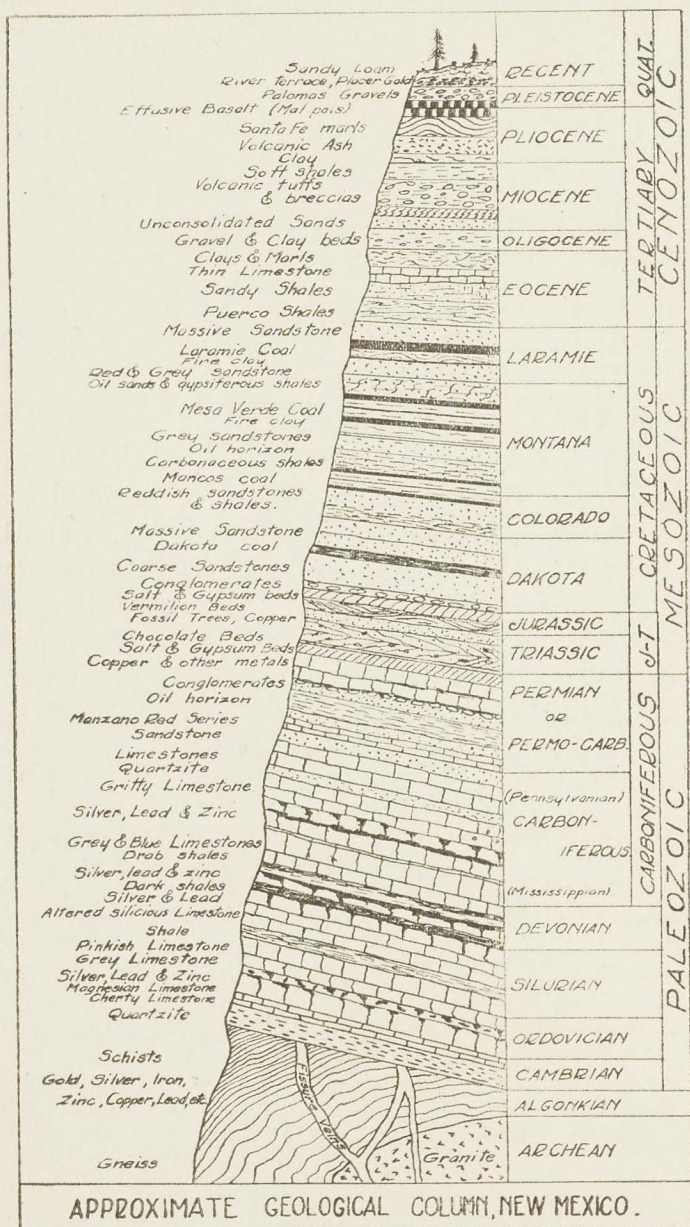 Sandy Loam
River Terrace, Placer Gold
Palomas Gravels
Effusive Basalt (Mal pais)
Santa Fe marls
Volcanic Ash
Clay
Soft shales
Volcanic tuffs
& breccias
Unconsolidated Sands
Gravel & Clay beds
Clays & Marls
Thin Limestone
Sandy Shales
Puerco Shales
Massive Sandstone
Laramie Coal
Fire clay
Red & Grey Sandstone
Oil sands & gypsiferous shales
Mesa Verde Coal
Fire clay
Grey sandstones
Oil horizon
Carbonaceous shales
Mancos coal
Reddish sandstones
& shales.
Massive Sandstone
Dakota coal
Coarse Sandstones
Conglomerates
Salt & Gypsum beds
Vermilion Beds
Fossil Trees, Copper
Chocolate Beds
Salt & Gypsum Beds
Copper & other metals
Conglomerates
Oil horizon
Manzano Red Series
Sandstone
Limestones
Quartzite
Gritty Limestone
Silver, Lead & Zinc
Grey & Blue Limestones
Drab shales
Silver, lead & zinc
Dark shales
Silver & Lead
Altered silicious Limestone
Shale
Pinkish Limestone
Grey Limestone
Silver, Lead & Zinc
Magnesian Limestone
Cherty Limestone
Quartzite
Schists
Gold, Silver, Iron,
Zinc, Copper, Lead, etc.
Gneiss
Fissure Veins
Granite
RECENT
PLEISTOCENE
PLIOCENE
MIOCENE
OLIGOCENE
EOCENE
LARAMIE
MONTANA
COLORADO
DAKOTA
JURASSIC
TRIASSIC
PERMIAN
OR
PERMO-CARB.
(Pennsylvanian)
CARBON-
IFEROUS.
(Mississippian)
DEVONIAN
SILURIAN
ORDOVICIAN
CAMBRIAN
ALGONKIAN
ARCHEAN
QUAT.
TERTIARY
CRETACEOUS
J-T
CARBONIFEROUS
CENOZOIC
MESOZOIC
PALEOZOIC
APPROXIMATE GEOLOGICAL COLUMN, NEW MEXICO.